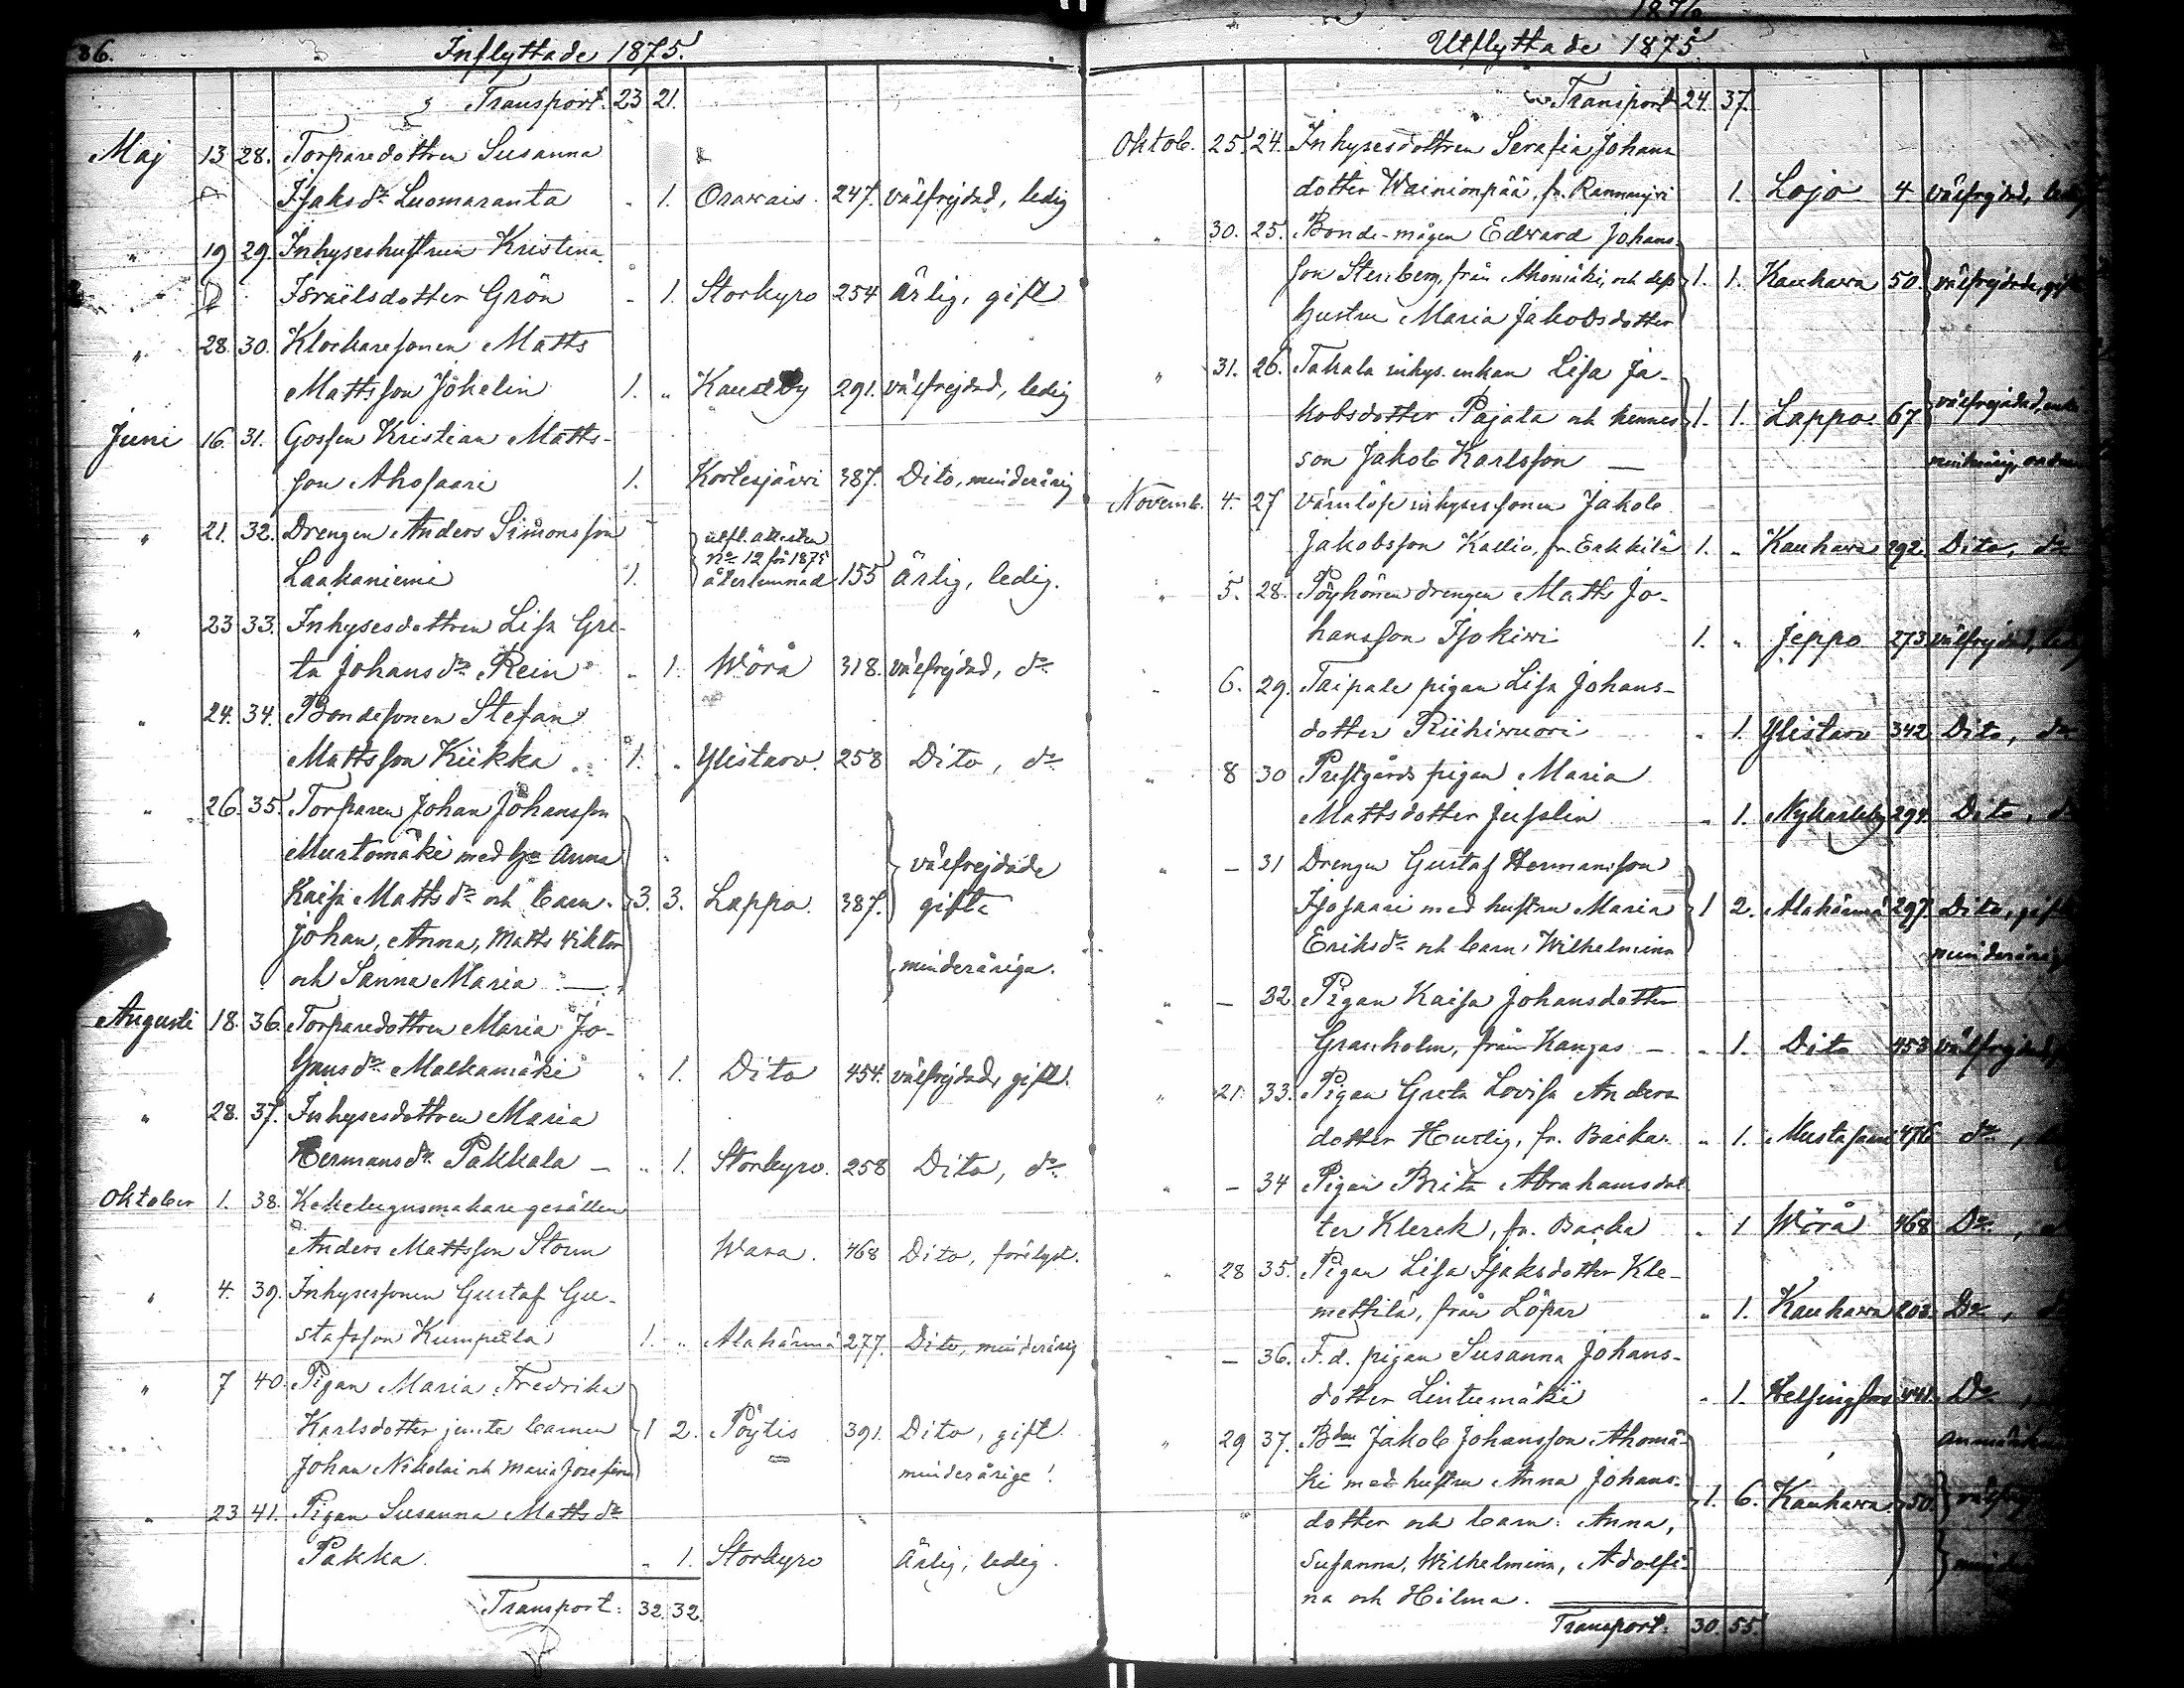 86.
Inflyttade 1875.
Transport. 23 21.
Maj 13 28. Torparedottren Susanna
Isaksdr Luomaranta " 1. Orawais. 247. välfrejdad, ledig
" 19 29. Inhyseshustrun Kristina
Israëlsdotter Grön " 1. Storkyro 254 Ärlig, gift
" 28. 30. Klockaresonen Matts
Mattsson Johelin 1. " 291. välfrejdad, ledig
Juni 16. 31. Gossen Kristian Matts-
son Ahosaari 1. Kortesjärvi 387. Dito, minderårig
" 21. 32. Drengen Anders Simonsson utfl. attesten
No 12 för 1875
Laakaniemi 1. återlemnad 155 Ärlig, ledig.
" 23 33. Inhysesdottren Lisa Gre-
ta Johansdr Rein " 1. Wörå 318. välfrejdad, dr
" 24. 34. Bondesonen Stefan
Mattsson Kiikka 1. " Ylistaro. 258 Dito, dr
" 26. 35. Torparen Johan Johansson
Murtomäki med Hu Anna välfrejdade
Kaisa Mattsdr och barn 3. 3. Lappo. 387. gifta
Johan, Anna, Matts Viktor
och Sanna Maria — minderåriga.
Augusti 18. 36. Torparedottren Maria Jo-
hansdr Malkamäki " 1. Dito 454. välfrejdad, gift.
" 28. 37. Inhysesdottren Maria
Hermansdr Pakkala — " 1. Storkyro. 258 Dito, dr
Oktober 1. 38. Kakelugnsmakare gesällen
Anders Mattsson Storm Wasa. 468 Dito, förelyst.
" 4. 39. Inhysessonen Gustaf Gu-
stafsson Kumpula 1. " Alahärmä 277. Dito, minderårig
" 7 40. Pigan Maria Fredrika
Karlsdotter jemte barnen 1 2. Pöytis 391. Dito, gift
Johan Nikolai och Maria Josefina minderårige!
" 23 41. Pigan Susanna Mattsdr
Pakka. " 1. Storkyro Ärlig, ledig.
Transport: 32. 32.
1876
Utflyttade 1875.
Transport 24. 37.
Oktob. 25. 24. Inhysesdottren Serafia Johans
dotter Wainionpää, fr. 1. Lojo 4 välfrejdad, ledig
" 30. 25. Bonde-mågen Edward Johans-
son Stenberg, från Ahomäki, och dess 1. 1. Kauhawa 50. välfrejdade, gift
hustru Maria Jakobsdotter
" 31. 26. Takala inhys. enkan Lisa Ja-
kobsdotter Pajala och hennes 1. 1. Lappo. 67. välfrejdad, enka
son Jakob Karlsson —
Novemb. 4. 27 inhysessonen Jakob
Jakobsson Kallio, fr. Erkkilä 1. " Kauhawa 292. Dito, dr
" 5. 28. Pöyhönen drengen Matts Jo-
hansson Isokiwi 1. " Jeppo 273 välfrejdad, ledig
" 6. 29. Taipale pigan Lisa Johans-
dotter Riihiwuori " 1. Ylistaro 342 Dito, dr
" 8 30 Prestgårds pigan Maria
Mattsdotter Jusslin " 1. Nykarleby 294. Dito,
" — 31 Drengen Gustaf Hermansson
Isosaari med hustru Maria 1 2. Alahärmä 297. Dito, gift
Eriksdr och barn Wilhelmina minderårig
" — 32 Pigan Kaisa Johansdotter
Granholm, från Kangas — " 1. Dito 453 välfrejdad,
" 21. 33. Pigan Greta Lovisa Anders
dotter Hurtig, fr. Backa " 1. Mustasaari 476 dr,
" — 34 Pigan Brita Abrahamsdot-
ter Klerck, fr. Backa " 1 Wörå 468 Dr,
" 28 35. Pigan Lisa Isaksdotter Kle-
mettilä, från Löpar " 1. Kauhawa 202. Dr,
" — 36. F. d. pigan Susanna Johans-
dotter Lintumäki " 1. Helsingfors 441. Dr,
" 29 37. Bden Jakob Johansson Ahomä-
ki med hustru Anna Johans- 1. 6. Kauhawa 50.
dotter och barn: Anna,
Susanna, Wilhelmina, Adolfi-
na och Hilma.
Transport: 30. 55.